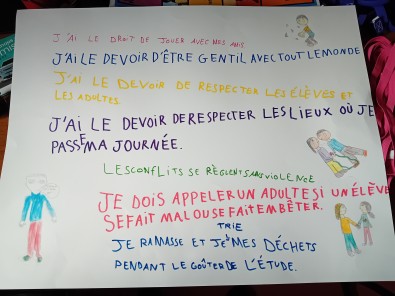 J'AI LE DROIT DE JOUER AVEC MES AMIS
J'AI LE DEVOIR D'ÊTRE GENTIL AVEC TOUT LE MONDE
J'AI LE DEVOIR DE RESPECTER LES ÉLÈVES ET
LES ADULTES.
J'AI LE DEVOIR DE RESPECTER LES LIEUX OÙ JE
PASSE MA JOURNÉE.
LES CONFLITS SE RÈGLENT SANS VIOLENCE
JE DOIS APPELER UN ADULTE SI UN ÉLÈVE
SE FAIT MAL OU SE FAIT EMBÊTER.
TRIE
JE RAMASSE ET JE MES DÉCHETS
PENDANT LE GOÛTER DE L'ÉTUDE.